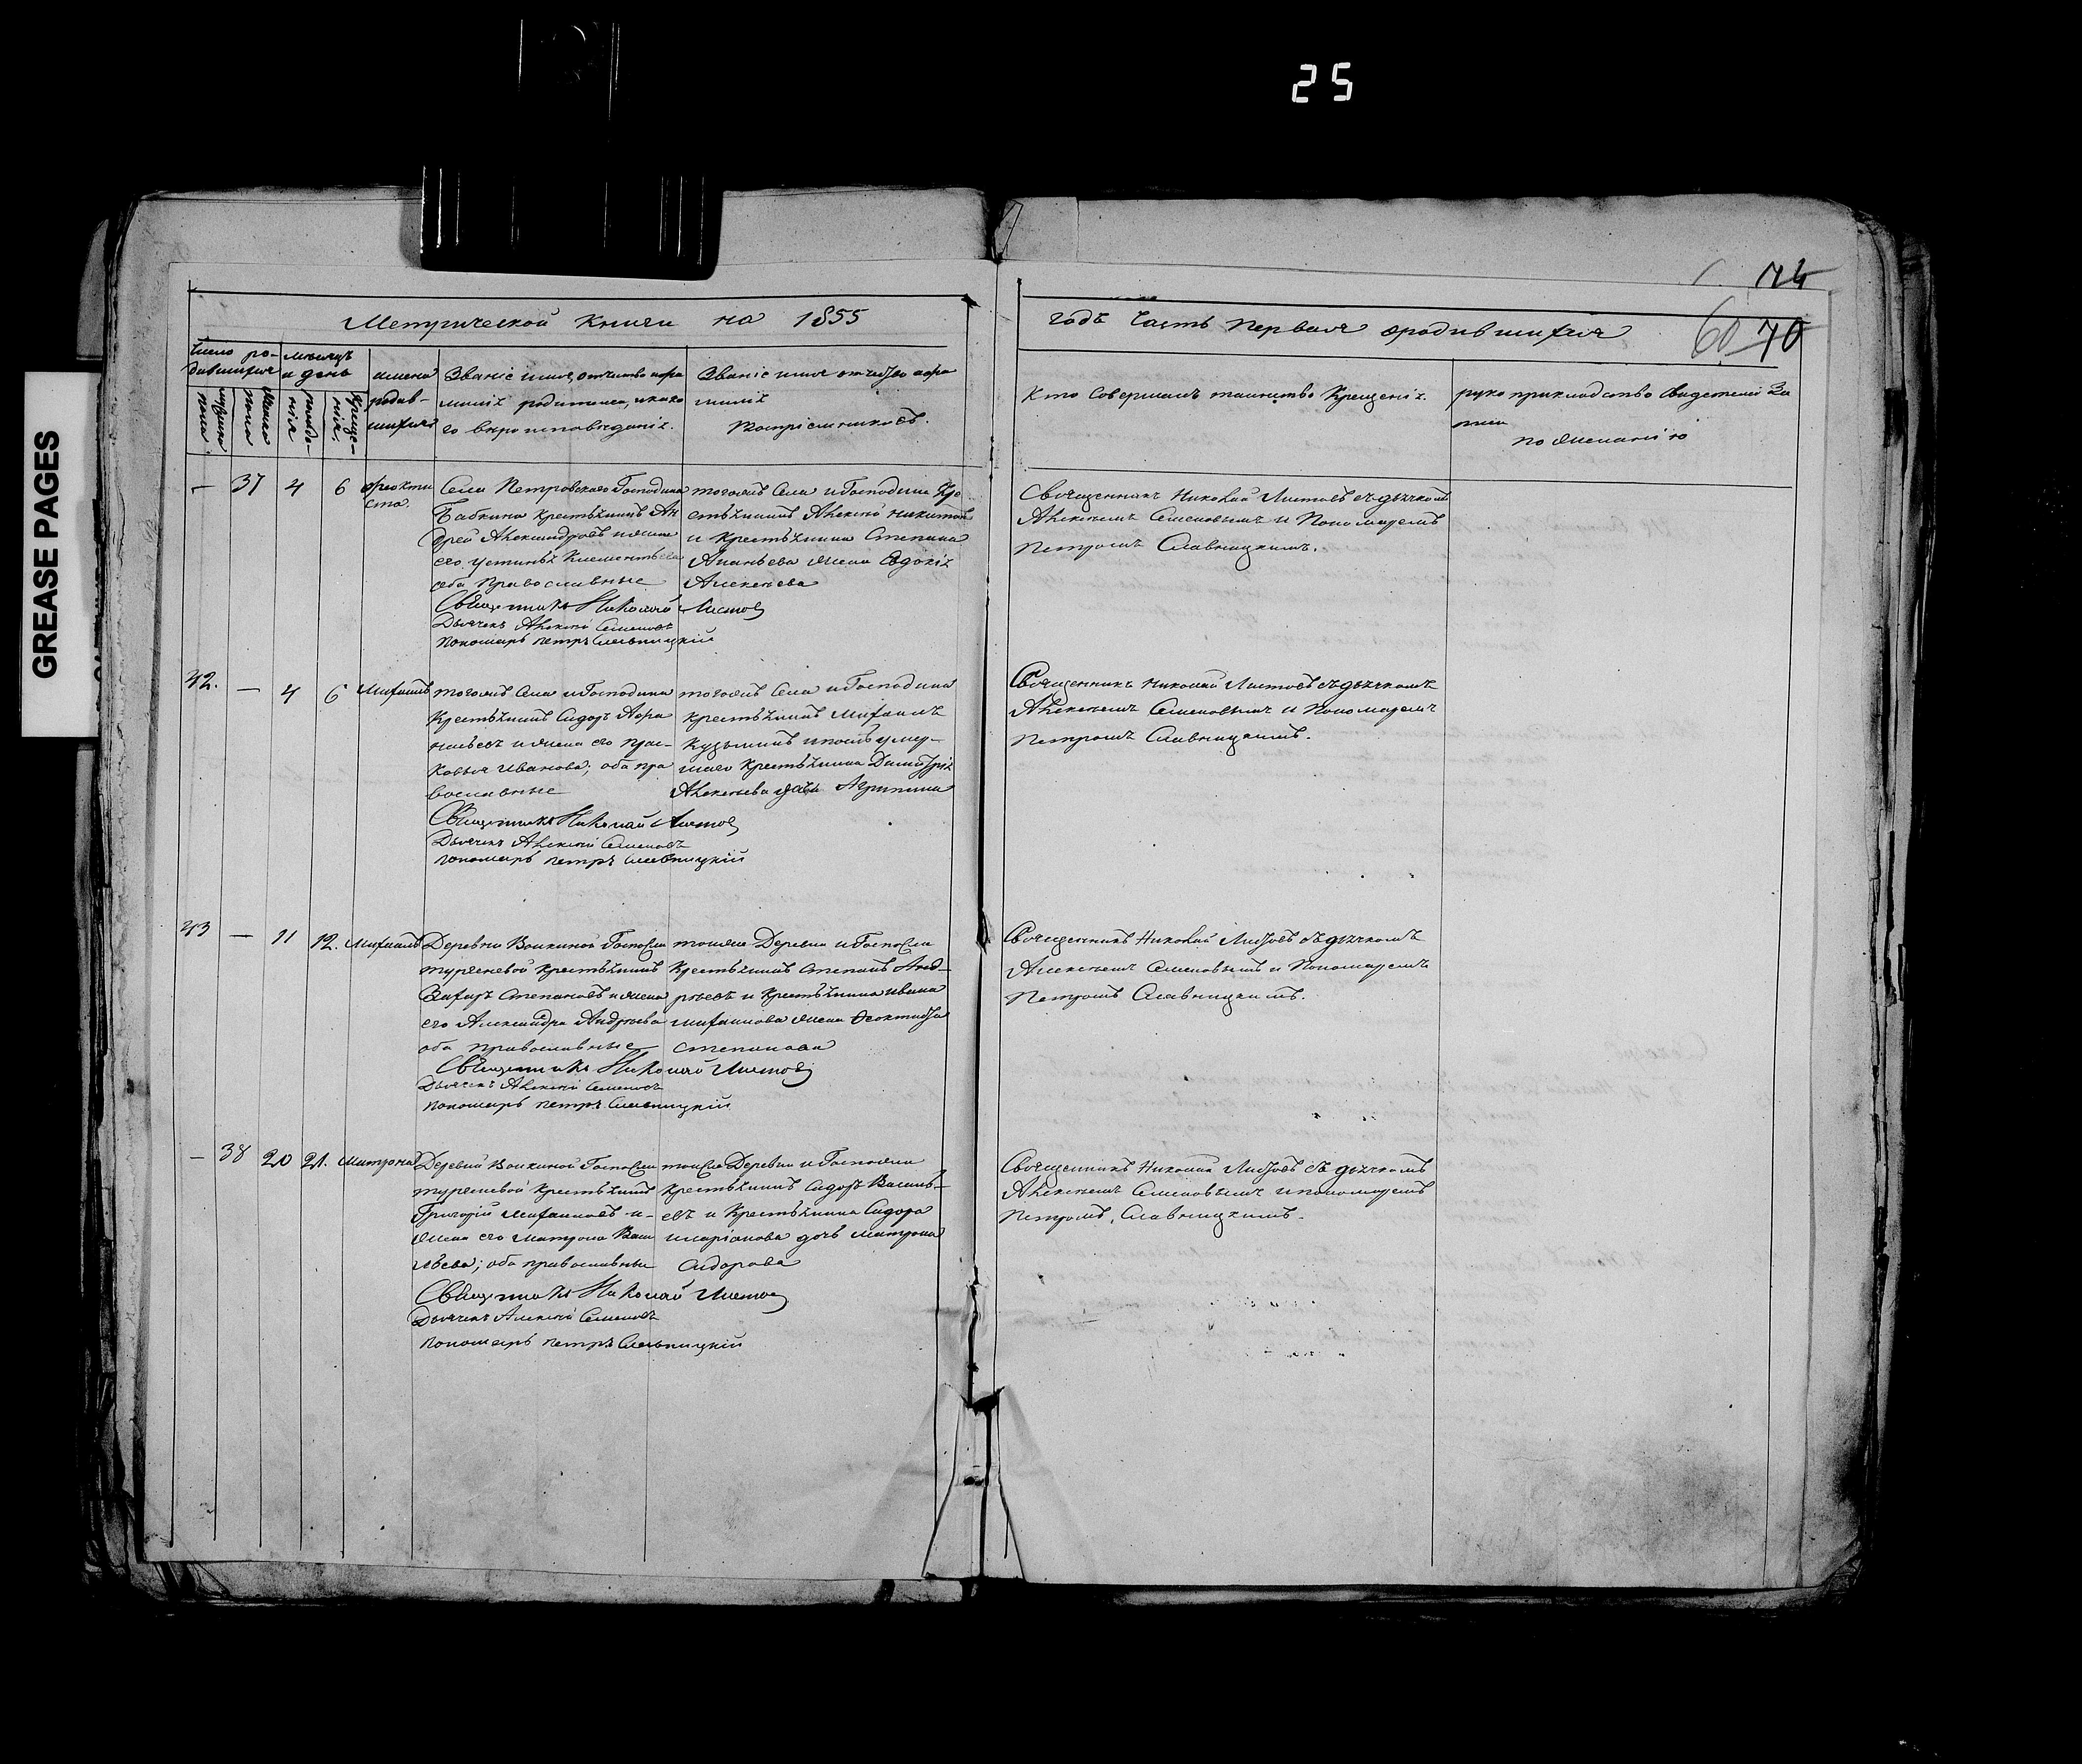 25
GREASE PAGES
74
60 70
Метрической книги на 1855
годъ Часть первая о родившихся
Число родившихся
мужеска пола
женска пола
мѣсяцъ и день
рожденія
крещенія.
имена родившихся
Званіе имя, отчество и фамилія родителей, и какого вѣроисповѣданія.
Званіе имя отчество и фамилія
Воспріемниковъ.
Кто Совершалъ таинство Крещенія.
рукоприкладство свидетелей записи
по желанію
— 37 4 6 Феоктиста.
Села Петровскаго Господина
Бабкина крестьянинъ Ан
дрей Александровъ и жена
его Устинья Клементьева
оба Православные
тогожъ Села и Господина Кре
стьянинъ Алексей Никитинъ
и Крестьянина Степана
Ананьева жена Евдокія
Алексеева
Священникъ Николай Листовъ
Дьячекъ Алексей Семеновъ
Пономарь Петръ Славницкій
Священникъ Николай Листовъ съ дьячкомъ
Алексеемъ Семеновымъ и Пономаремъ
Петромъ Славницкимъ.
42. — 4 6 Михаилъ
тогожъ Села и Господина
Крестьянинъ Сидоръ Афа
насьевъ и жена его Прас-
ковья Иванова; оба пра
вославные
тогожъ Села и Господина
крестьянинъ Михаилъ
Кузьминъ и послѣ умер-
шаго Крестьянина Димитрія
Алексеева дочь Агрипина
Священникъ Николай Листовъ
Дьячекъ Алексей Семеновъ
пономарь Петръ Славницкій
Священникъ Николай Листовъ съ дьячкомъ
Алексеемъ Семеновымъ и Пономаремъ
Петромъ Славницкимъ.
43 — 11 12. Михаилъ
Деревни Воикиной Госпожи
Тургеневой Крестьянинъ
Захаръ Степановъ и жена
его Александра Андреева
оба православные
тояже Деревни и Госпожи
Крестьянинъ Степанъ Анд-
реевъ и Крестьянина Ивана
Михаилова жена Феоктиста
Степанова
Священникъ Николай Листовъ
Дьячекъ Алексей Семеновъ
Пономарь Петръ Славницкій
Священникъ Николай Листовъ съ дьячкомъ
Алексеемъ Семеновымъ и Пономаремъ
Петромъ Славницкимъ.
— 38 20 21. Матрона
Деревни Воикиной Госпожи
Тургеневой Крестьянинъ
Григорій Михаиловъ и-
жена его Матрона Васи
льева; оба православные
тояже Деревни и Госпожи
крестьянинъ Сидоръ Василь-
евъ и Крестьянина Сидора
Иларіонова дочь Матрона
Сидорова
Священникъ Николай Листовъ
Дьячекъ Алексей Семеновъ
Пономарь Петръ Славницкій
Священникъ Николай Листовъ съ дьячкомъ
Алексеемъ Семеновымъ и пономаремъ
Петромъ, Славницкимъ.